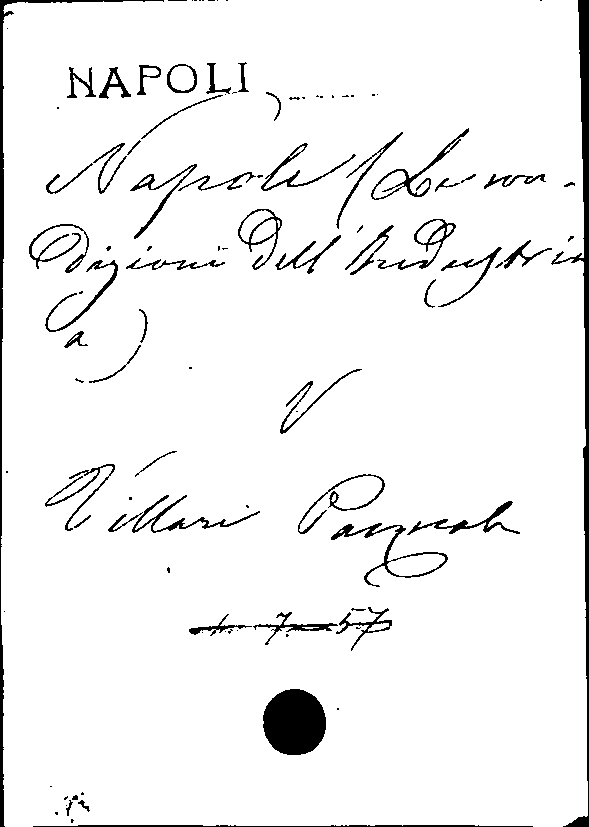 NAPOLI
Napoli (Le con-
dizioni dell'Industria
a)
V
Villari Pasquale
7 57